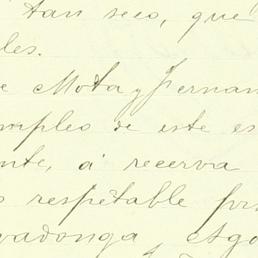 tan seco, que
les.
e Mota y Fernan
mpleo de este es
nte, a recerva
s respetable por
vadonga Ago